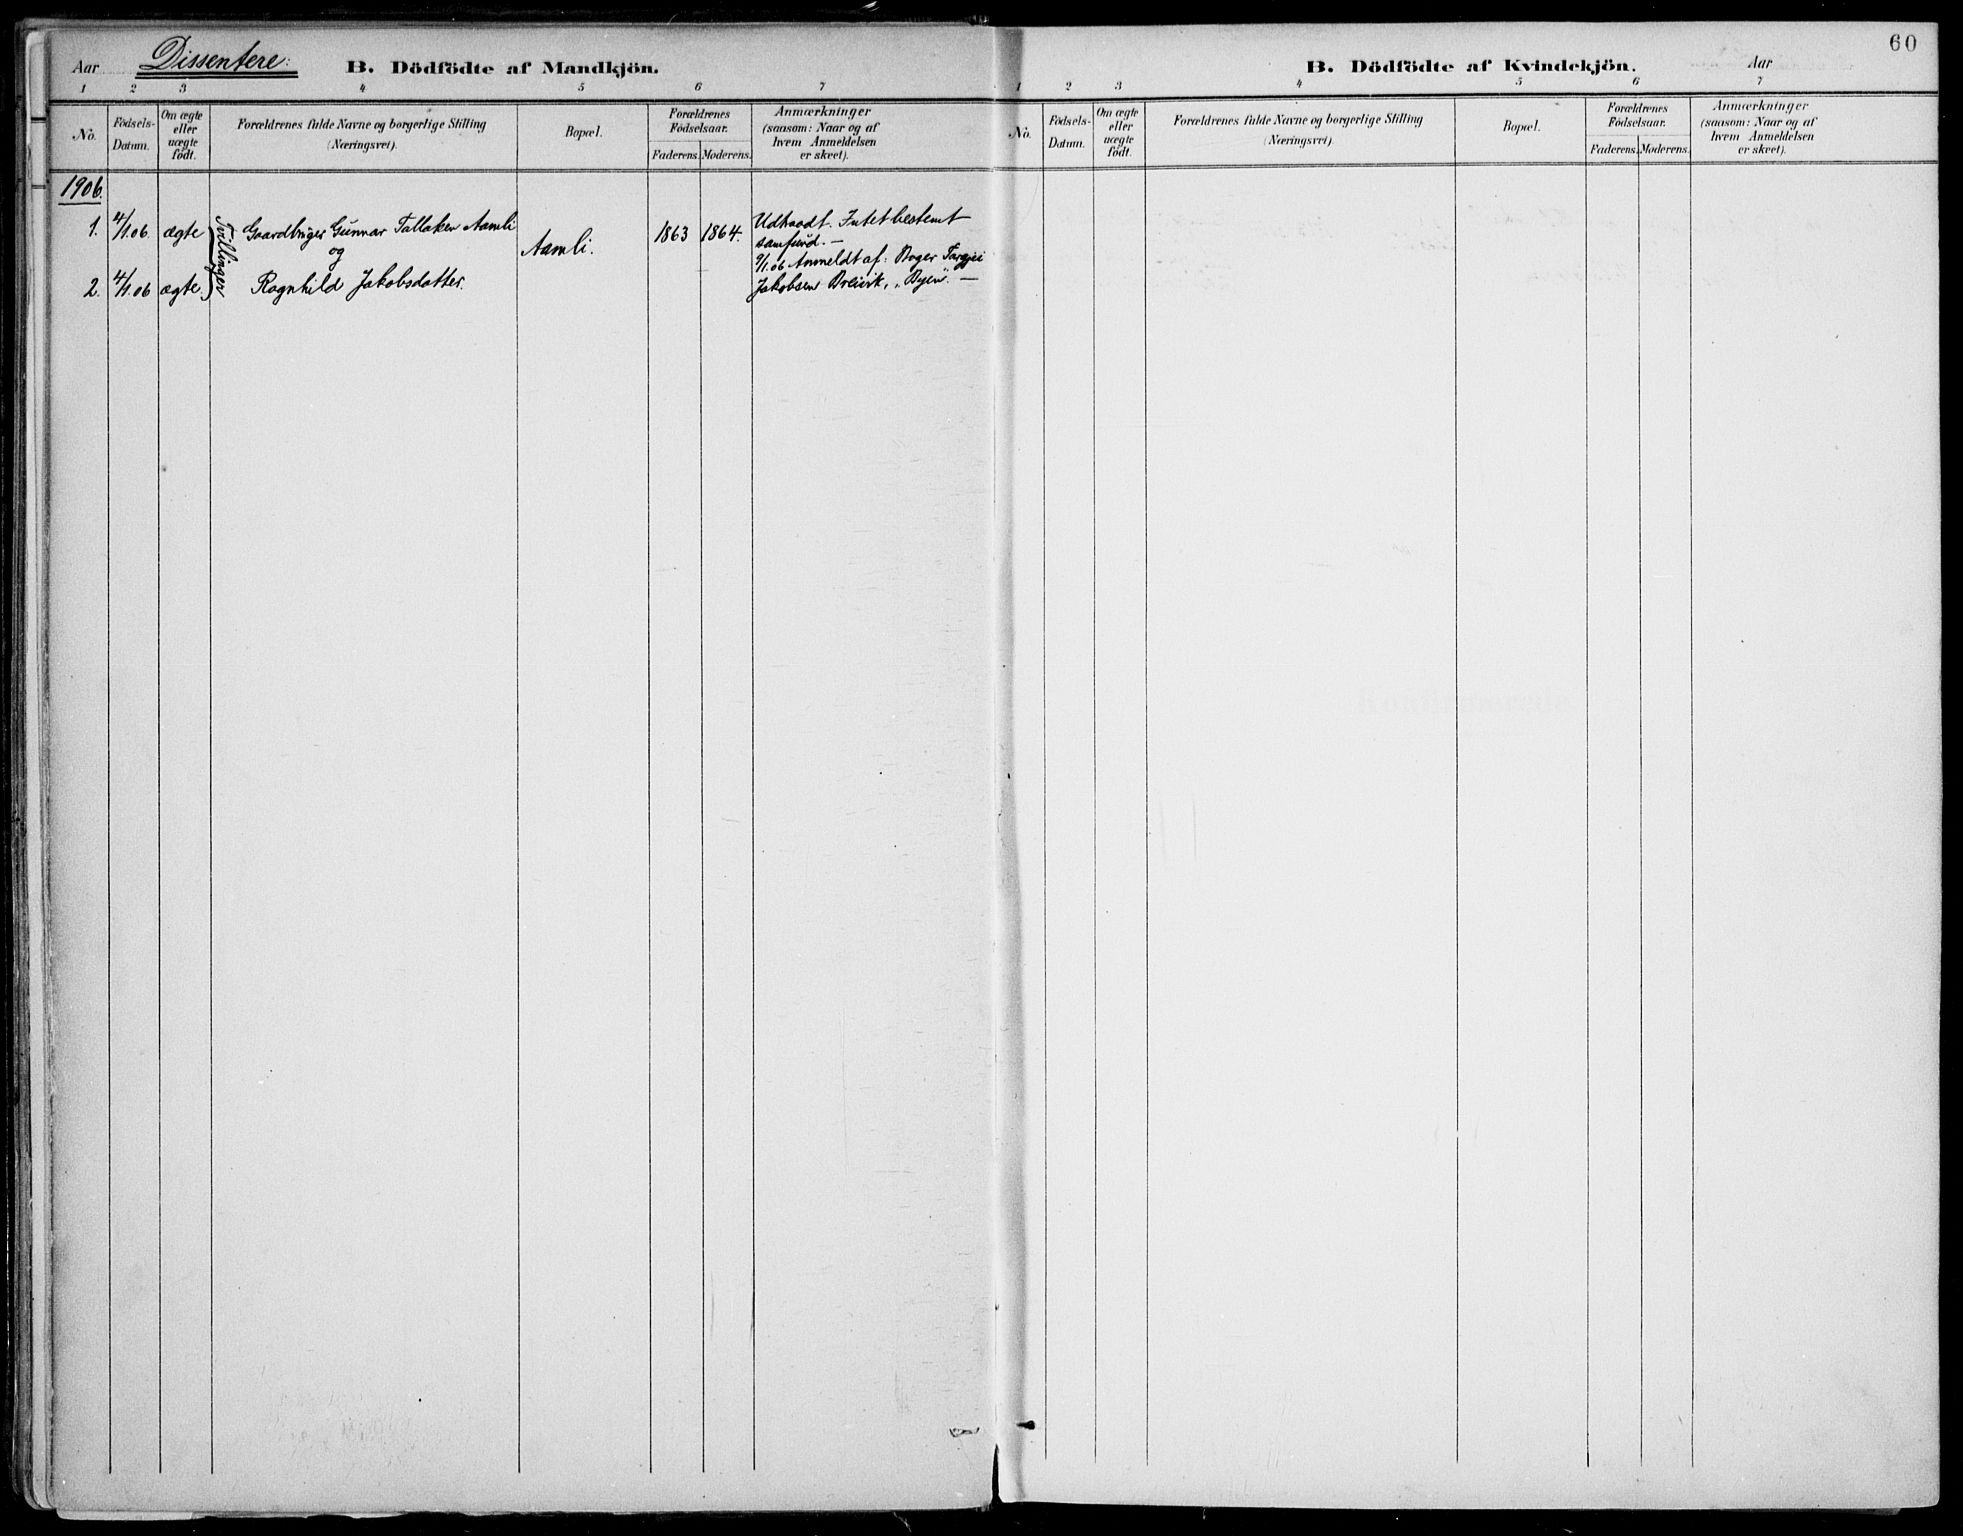 Aar Dissentere: B. Dödfödte af Mandkjön.
1 2 3 4 5 6 7
No. Födsels-Datum. Om ægte eller uægte födt. Forældrenes fulde Navne og borgerlige Stilling (Næringsvei). Bopæl. Forældrenes Födselsaar. Faderens. Moderens. Anmærkninger (saasom: Naar og af hvem Anmeldelsen er skeet).
1906.
1. 4/1.06. ægte Tvillinger Gaardbruger Gunnar Tallaksen Aamli Aamli. 1863 1864. Udtraadt. Intet bestemt
og samfund. —
9/1.06 Anmeldt af: Torgjei
2. 4/1.06 ægte Ragnhild Jakobsdatter. Jakobsen Breivik, „Byen". —
60
B. Dödfödte af Kvindekjön. Aar
1 2 3 4 5 6 7
No. Födsels-Datum. Om ægte eller uægte födt. Forældrenes fulde Navne og borgerlige Stilling (Næringsvei). Bopæl. Forældrenes Födselsaar. Faderens. Moderens. Anmærkninger (saasom: Naar og af hvem Anmeldelsen er skeet).